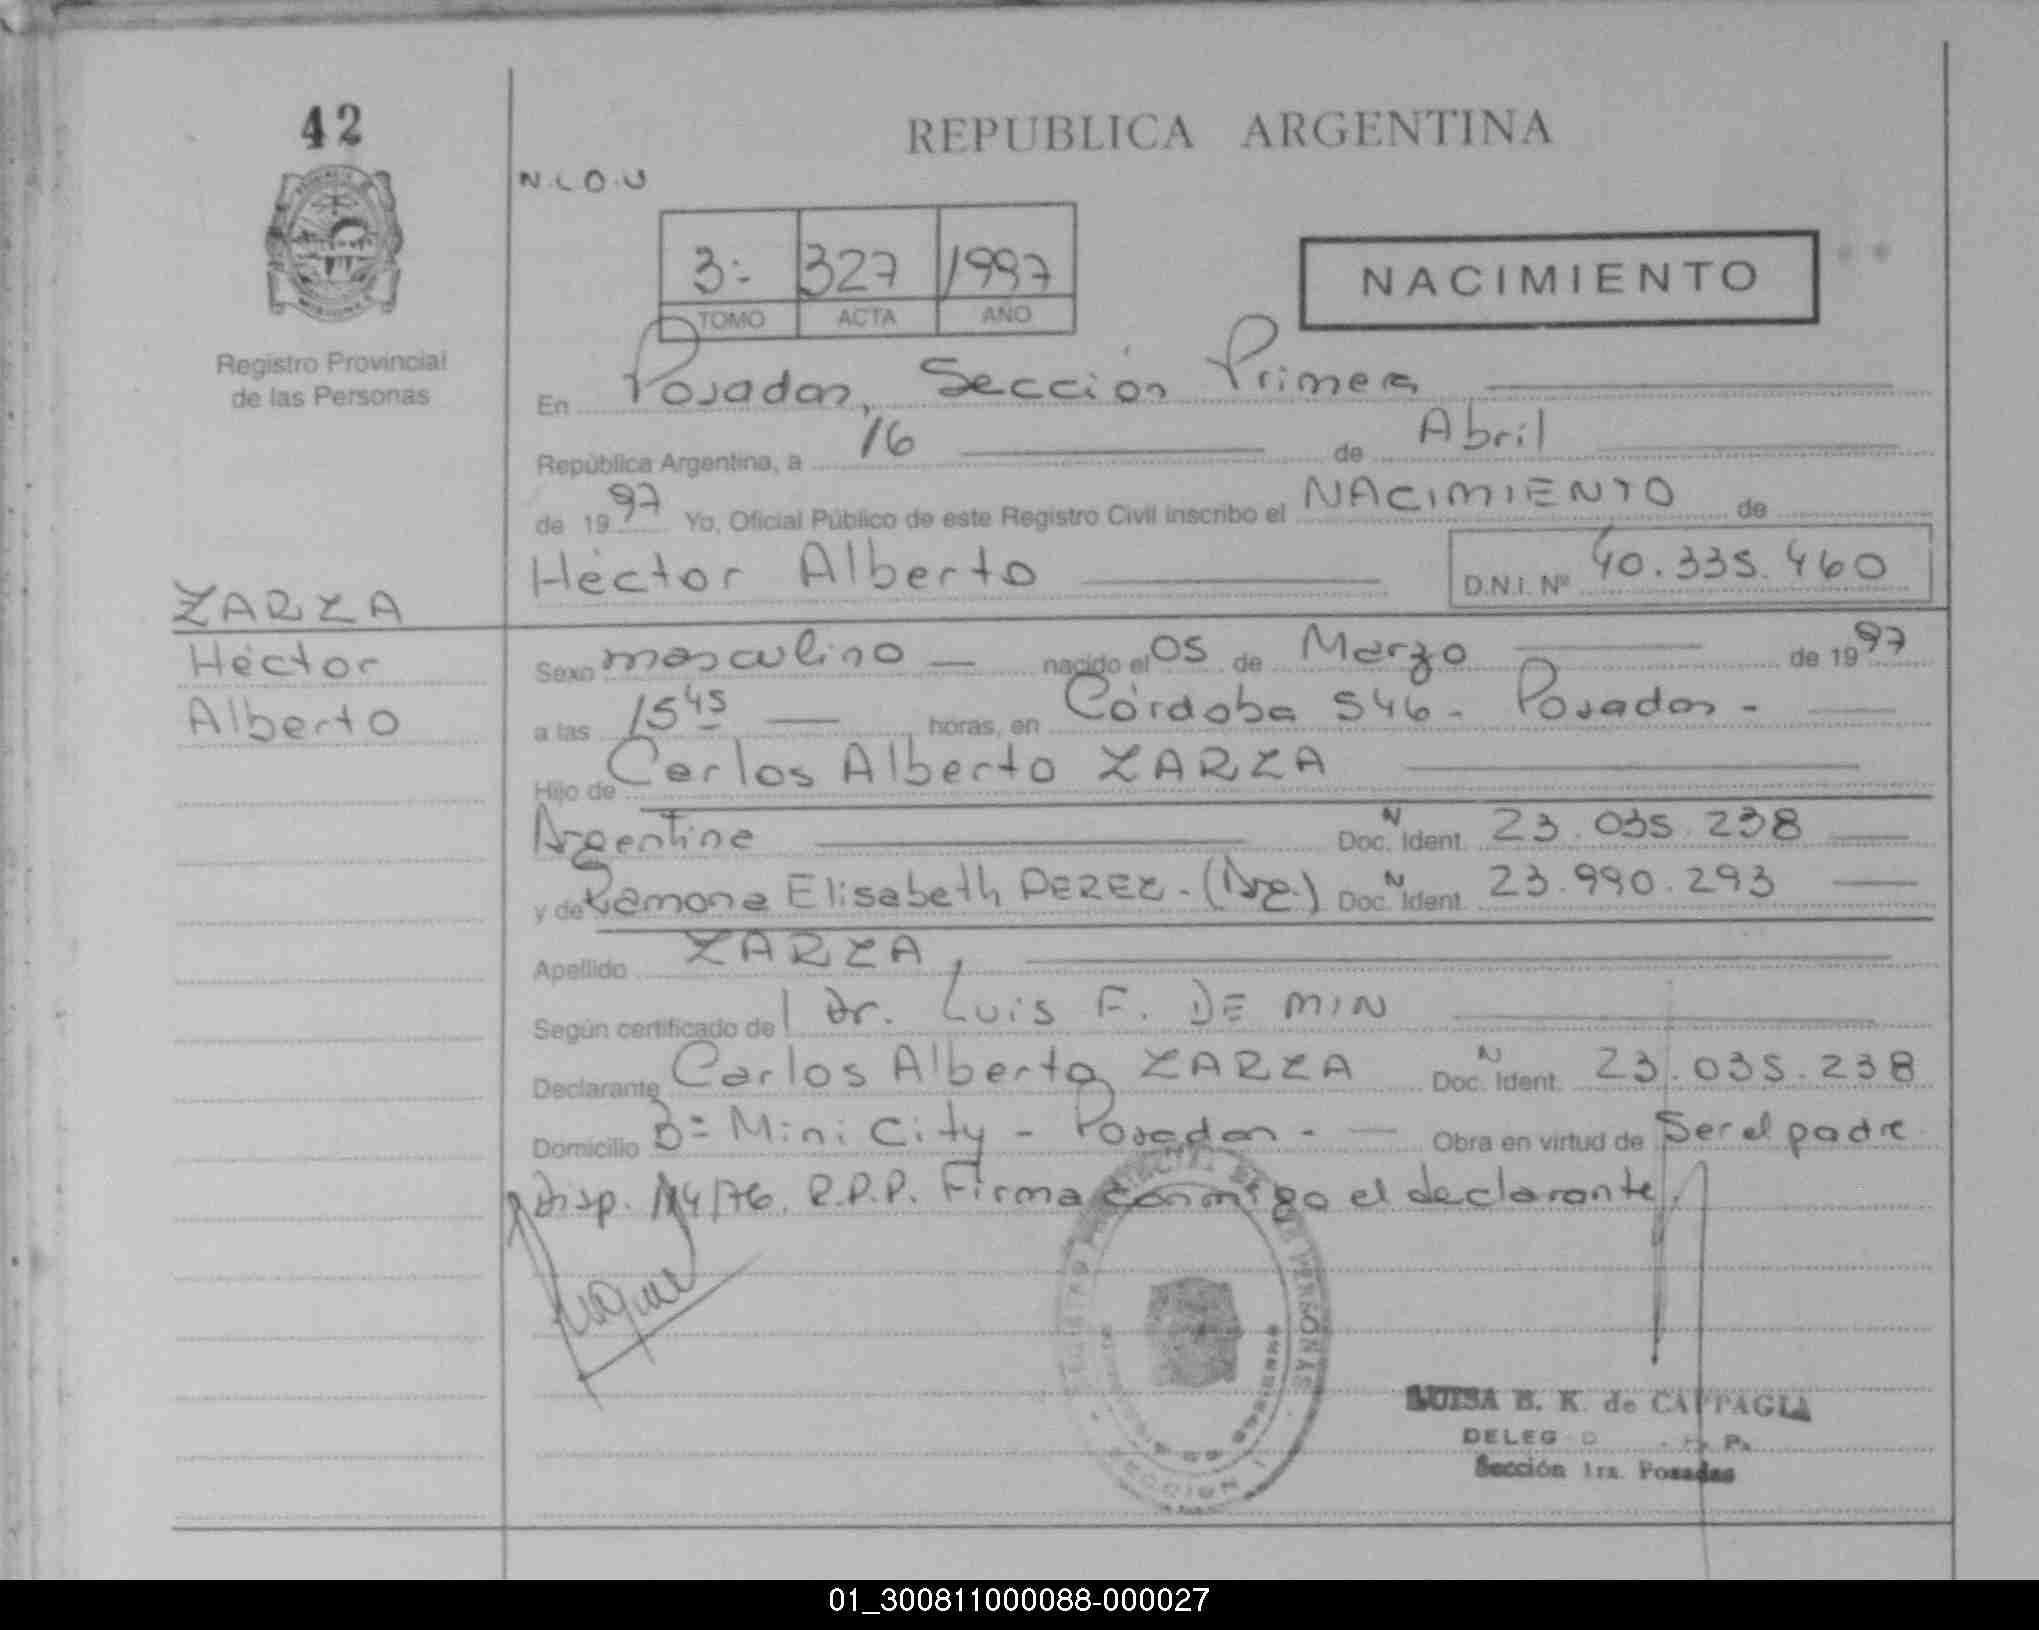 42
REPUBLICA ARGENTINA
N.L.O.U
3= 327 1997
TOMO ACTA AÑO
NACIMIENTO
Registro Provincial
de las Personas
En Posadas, Sección Primera
República Argentina, a 16 de Abril
de 1997 Yo, Oficial Público de este Registro Civil inscribo el NACIMIENTO de
Héctor Alberto D.N.I. Nº 40.335.460
ZARZA
Héctor
Alberto
Sexo masculino nacido el 05 de Marzo de 1997
a las 15 45 horas, en Córdoba 546 - Posadas -
Hijo de Carlos Alberto ZARZA
Argentina Doc. N Ident. 23.035.238
y de Ramona Elisabeth PEREZ - (Arg.) Doc. N Ident. 23.990.293
Apellido ZARZA
Según certificado del Dr. Luis F. DE MIN
Declarante Carlos Alberto ZARZA Doc. N Ident. 23.035.238
Domicilio B= Mini City - Posadas - Obra en virtud de Ser el padre
Disp. 14/76. R.P.P. Firma conmigo el declarante
PERSONAS
SECCION 1
LUISA B. K. de CAPPAGLI
DELEG P.
Sección 1ra. Posadas
01_300811000088-000027